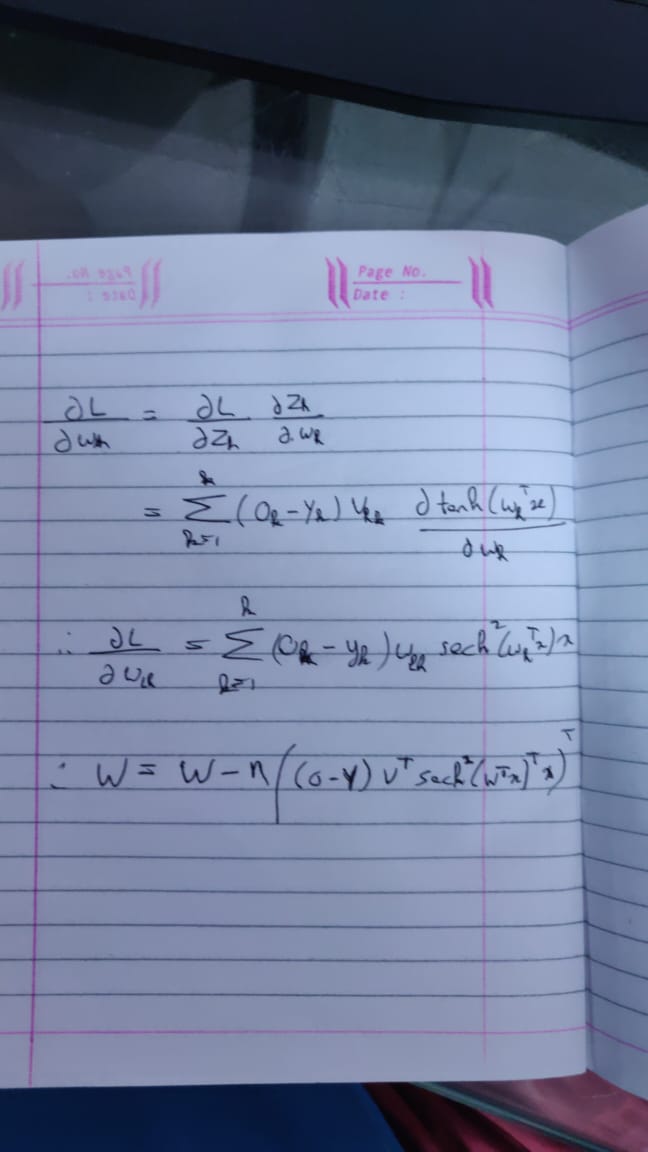 Page No.
Date :
∂L/∂wₕ = ∂L/∂zₕ · ∂zₕ/∂wₕ
= Σₖ₌₁ᵏ (Oₖ - Yₖ) vₖₕ ∂tanh(wₕᵀx)/∂wₕ
∴ ∂L/∂wₕ = Σₖ₌₁ᵏ (Oₖ - yₖ) vₖₕ sech²(wₕᵀx)x
∴ W = W - η((O-Y) Vᵀ sech²(Wᵀx)ᵀ x)ᵀ